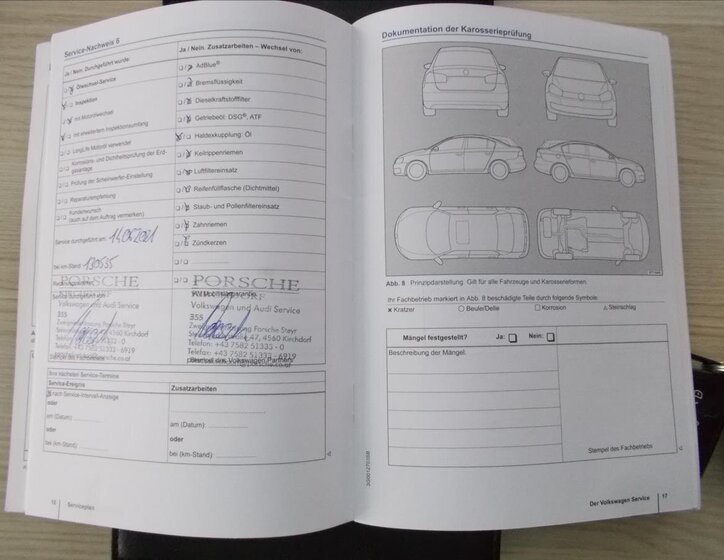 Service-Nachweis 6
Ja / Nein. Durchgeführt wurde:
Ölwechsel-Service
Inspektion
mit Motorölwechsel
mit erweitertem Inspektionsumfang
LongLife Motoröl verwendet
Korrosions- und Dichtheitsprüfung der Erd-
gasanlage
Prüfung der Scheinwerfer-Einstellung
Reparaturempfehlung
Kundenwunsch
(auch auf dem Auftrag vermerken)
Service durchgeführt am: 14.05.2021
bei km-Stand:
Ja / Nein. Zusatzarbeiten – Wechsel von:
AdBlue®
Bremsflüssigkeit
Dieselkraftstofffilter
Getriebeöl: DSG®, ATF
Haldexkupplung: Öl
Keilrippenriemen
Luftfiltereinsatz
Reifenfüllflasche (Dichtmittel)
Staub- und Pollenfiltereinsatz
Zahnriemen
Zündkerzen
PORSCHE
Volkswagen und Audi Service
355
Zweigniederlassung Porsche Steyr
4560 Kirchdorf
PORSCHE
Volkswagen und Audi Service
355
Zweigniederlassung Porsche Steyr
47, 4560 Kirchdorf
Telefon: +43 7582 51335 - 0
Telefax: +43 7582 51335 - 6919
Ihre nächsten Service-Termine
Service-Ereignis
nach Service-Intervall-Anzeige
oder
am (Datum):
oder
bei (km-Stand)
Zusatzarbeiten
am (Datum):
oder
bei (km-Stand):
12
Serviceplan
Dokumentation der Karosserieprüfung
Abb. 8 Prinzipdarstellung. Gilt für alle Fahrzeuge und Karosserieformen.
Ihr Fachbetrieb markiert in Abb. 8 beschädigte Teile durch folgende Symbole:
Kratzer
Beule/Delle
Korrosion
Steinschlag
Mängel festgestellt? Ja: Nein:
Beschreibung der Mängel:
Stempel des Fachbetriebs
Der Volkswagen Service
17